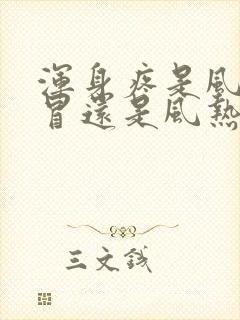 渾身疼是風
冒還是風熱
三文錢